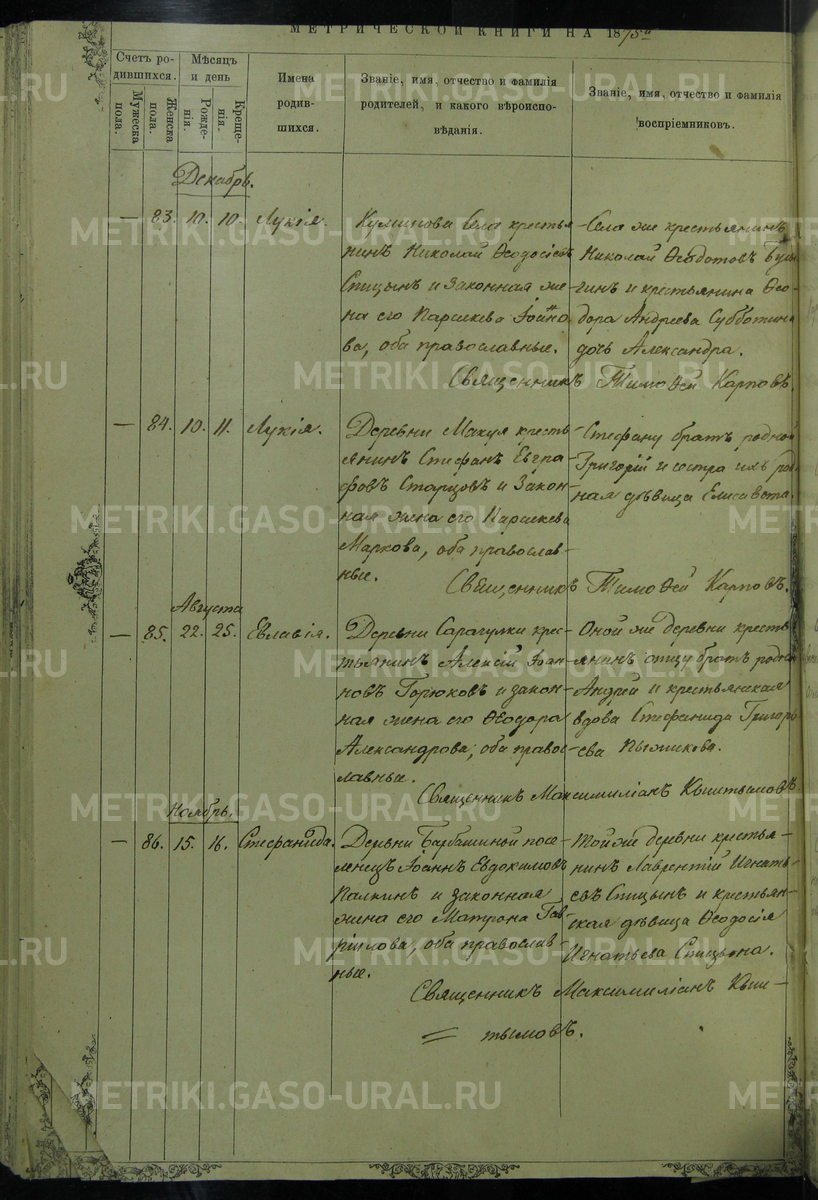 МЕТРИЧЕСКОЙ КНИГИ НА 1875й
Счетъ ро-
дившихся.
Мужеска
пола.
Женска
пола.
Мѣсяцъ
и день
Рожде-
нія.
Креще-
нія.
Имена
родив-
шихся.
Званіе, имя, отчество и фамилія
родителей, и какого вѣроиспо-
вѣданія.
Званіе, имя, отчество и фамилія
воспріемниковъ.
Декабрь.
— 83. 10. 10. Лукія.
села кресть
нинъ Николай Ѳеодосіевъ
Спицынъ и законная же
на его Параскева Іоанно
ва, оба православные.
Села же крестьянинъ
Николай Ѳеодотовъ
гинъ и крестьянина Ѳео-
дора Андреева Субботина
дочь Александра.
Священникъ Тимоѳей Карповъ.
— 84. 10. 11. Лукія.
Деревни Макуя кресть
янинъ Стефанъ Евгра
фовъ Старцовъ и закон-
ная жена его Параскева
Маркова, оба православ-
ные.
Стефану братъ родной
Григорій и сестра ихъ род
ная дѣвица Елисавета.
Священникъ Тимоѳей Карповъ.
Августа
— 85. 22. 25. Евлавія.
Деревни Сарагулки крес-
тьянинъ Алексій Іоан
новъ Горюковъ и закон-
ная жена его Ѳеодора
Александрова, оба правос
лавные.
Оной же деревни кресть
янинъ отцу братъ родной
Андрей и крестьянская
вдова Стефанида Григорь
ева Пыжикова.
Священникъ Максимиліанъ Кыштымовъ
Ноябрь.
— 86. 15. 16. Стефанида.
Деревни Барбашиной посе-
ленецъ Іоаннъ Евдокимовъ
Палкинъ и законная
жена его Матрона Гав
рілова, оба православ-
ные.
Той же деревни крестья-
нинъ Лаврентій Игнать
евъ Спицынъ и крестьян-
ская дѣвица Ѳеодосія
Игнатьева Спицына.
Священникъ Максимиліанъ Кыш-
тымовъ.
METRIKI.GASO-URAL.RU